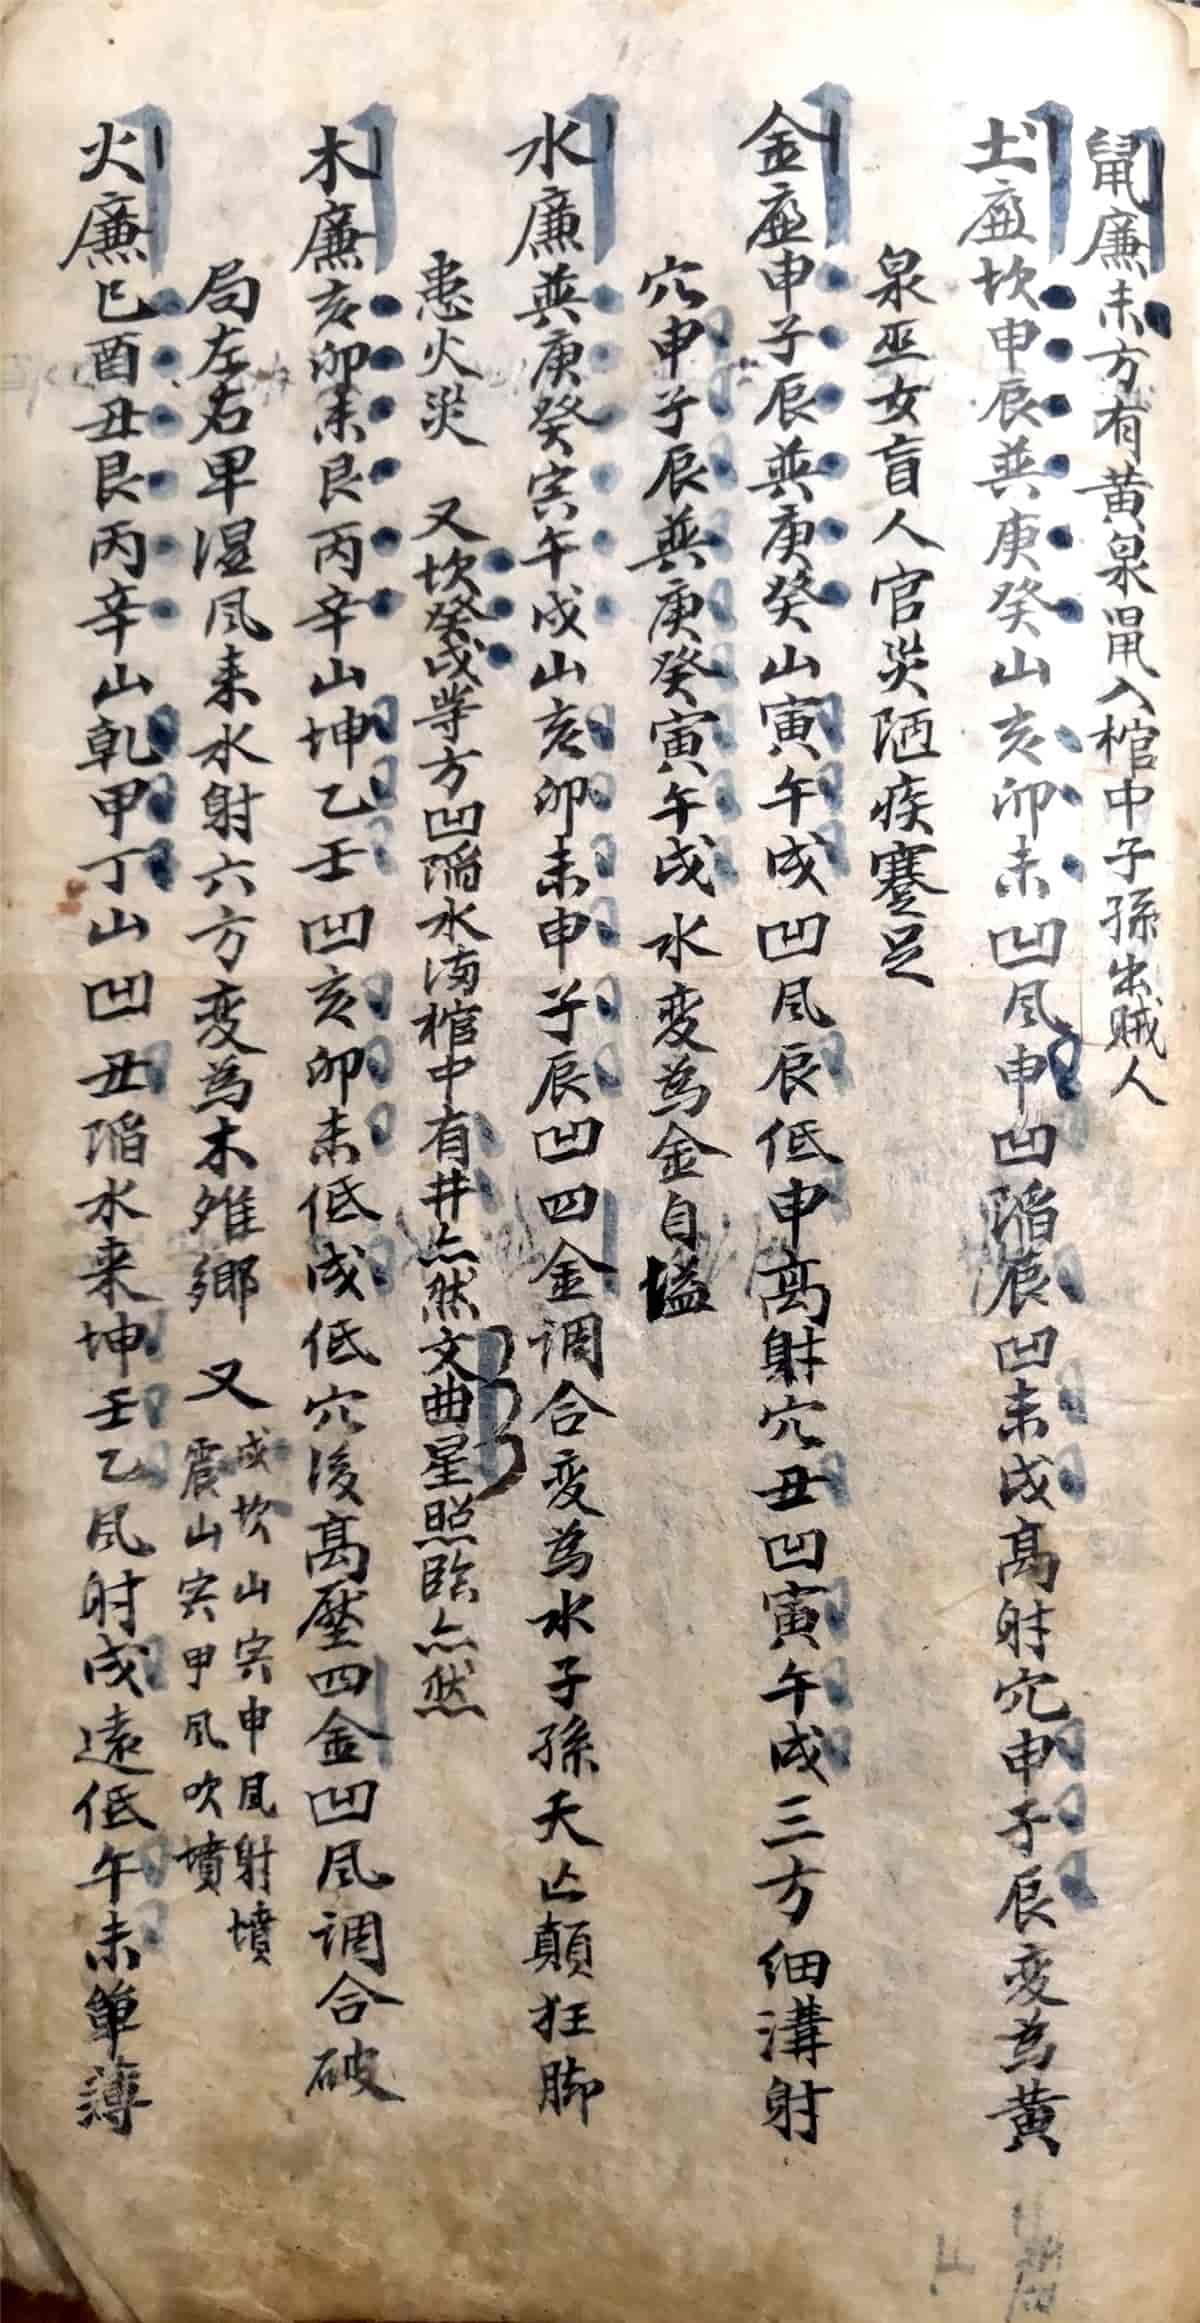 鼠廉未方有黄泉鼠入棺中子孫出賊人
土廉坎申辰巽庚癸山亥卯未凹風申凹陷辰凹未戌髙射穴申子辰变為黄
泉巫女盲人官災陋疾蹇足
金廉申子辰巽庚癸山寅午戌凹風辰低申髙射穴丑凹寅午戌三方细溝射
穴申子辰巽庚癸寅午戌水变為金自
水廉巽庚癸寅午戌山亥卯未申子辰凹四金调合变為水子孫夭亾顛狂脚
患火災 又坎癸戌等方凹陷水满棺中有井亦然文曲星照臨亦然
木廉亥卯未艮丙辛山坤乙壬凹亥卯未低戌低穴後髙壓四金凹風调合破
局左右卑湿風来水射六方变為木雉鄉 又
戌坎山寅申風射墳
震山寅甲風吹墳
火廉巳酉丑艮丙辛山乾甲丁山凹丑陷水来坤壬乙風射戌遠低午未单薄